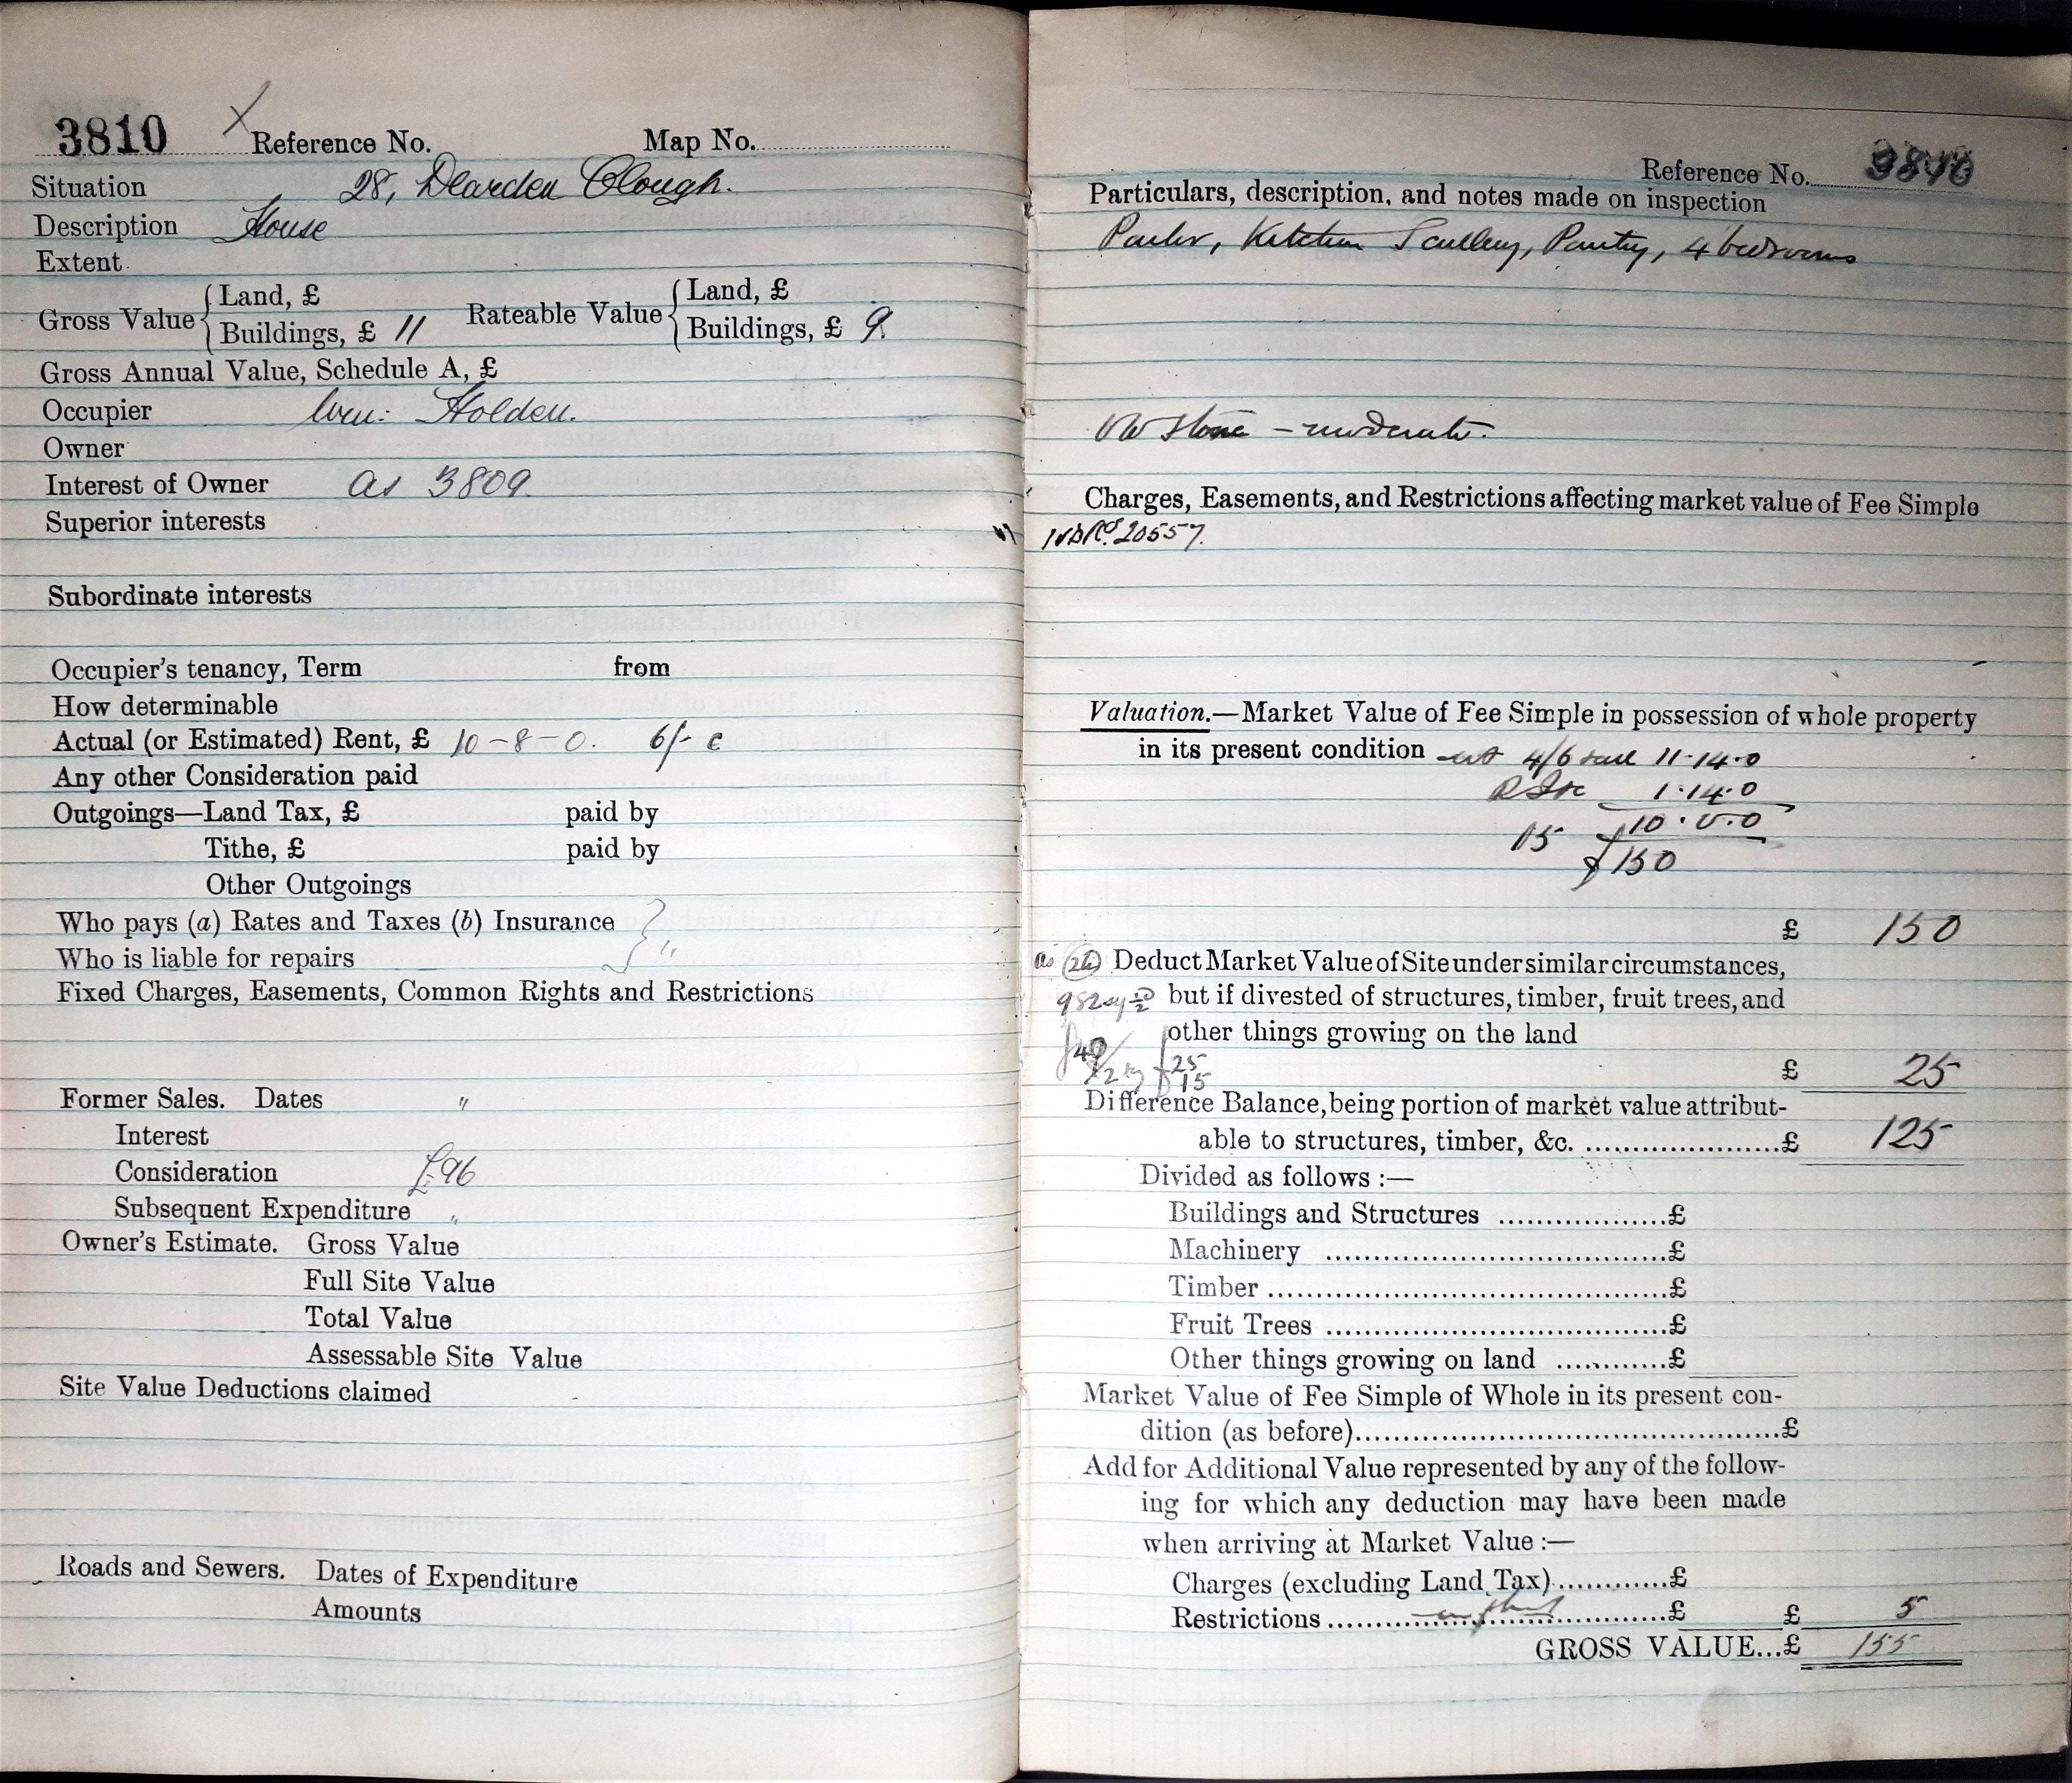 3810 Reference No. Map No.
Situation 28, Dearden Clough.
Description House
Extent
Gross Value { Land, £
Buildings, £ 11
Rateable Value { Land, £
Buildings, £ 9.
Gross Annual Value, Schedule A, £
Occupier Wm: Holden.
Owner
Interest of Owner as 3809.
Superior interests
Subordinate interests
Occupier's tenancy, Term from
How determinable
Actual (or Estimated) Rent, £ 10-8-0. 6/-
Any other Consideration paid
Outgoings—Land Tax, £ paid by
Tithe, £ paid by
Other Outgoings
Who pays (a) Rates and Taxes (b) Insurance } "
Who is liable for repairs
Fixed Charges, Easements, Common Rights and Restrictions
Former Sales. Dates "
Interest
Consideration £96
Subsequent Expenditure "
Owner's Estimate. Gross Value
Full Site Value
Total Value
Assessable Site Value
Site Value Deductions claimed
Roads and Sewers. Dates of Expenditure
Amounts
Reference No. 3810
Particulars, description, and notes made on inspection
Parlor, Kitchen Scullery, Pantry, 4 bedrooms
Stone - moderate.
Charges, Easements, and Restrictions affecting market value of Fee Simple
20557.
Valuation.—Market Value of Fee Simple in possession of whole property
in its present condition 4/6 11.14.0
1.14.0
10.0.0
15
£150
£ 150
as (26) Deduct Market Value of Site under similar circumstances,
982 but if divested of structures, timber, fruit trees, and
other things growing on the land
£40 25
15
£ 25
Difference Balance, being portion of market value attribut-
able to structures, timber, &c. £ 125
Divided as follows :—
Buildings and Structures £
Machinery £
Timber £
Fruit Trees £
Other things growing on land £
Market Value of Fee Simple of Whole in its present con-
dition (as before) £
Add for Additional Value represented by any of the follow-
ing for which any deduction may have been made
when arriving at Market Value :—
Charges (excluding Land Tax) £
Restrictions £ £ 5
GROSS VALUE...£ 155